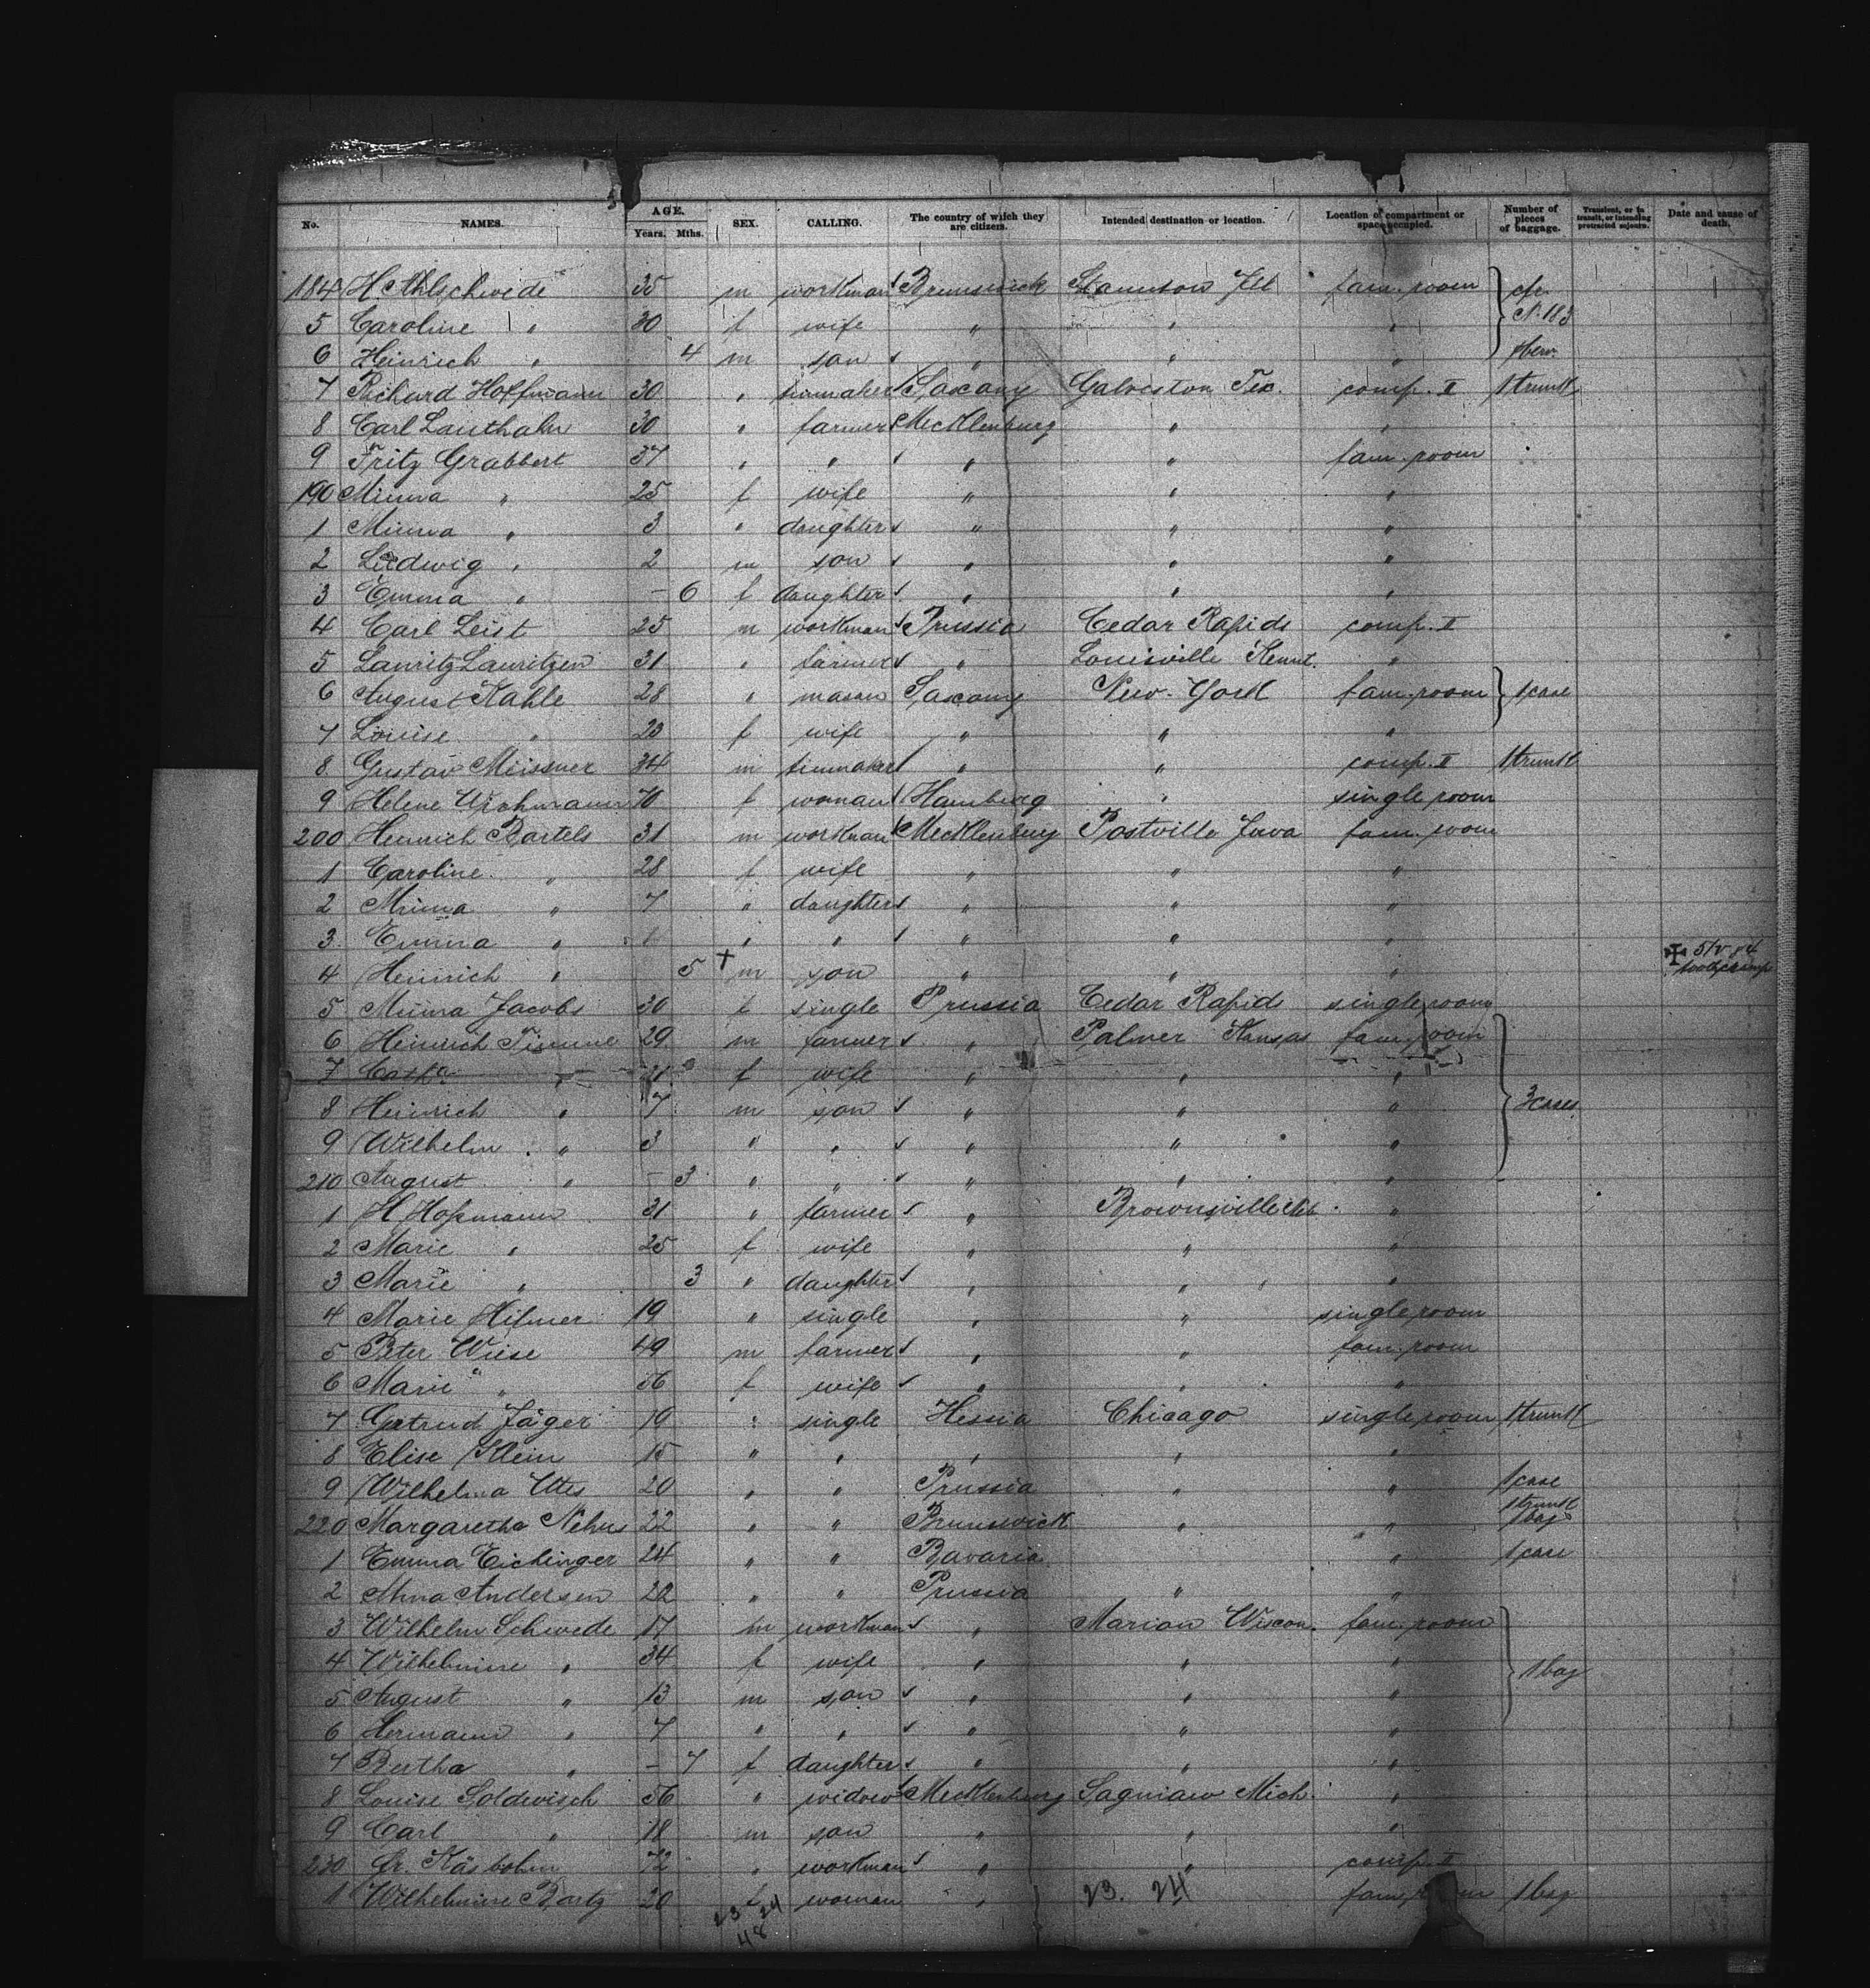 No. NAMES. AGE. Years. Mths. SEX. CALLING. The country of which they are citizens. Intended destination or location. Location of compartment or space occupied. Number of pieces of baggage. Transient, or in transit, or intending protracted sojourn. Date and cause of death.
184 H. Ahlschwede 35 m workman Brunswick Staunton Ill fam. room
5 Caroline " 30 f wife " " "
6 Heinrich " 4 m son " " "
7 Richard Hoffmann 30 " Saxony Galveston Tex. comp. II 1 trunk
8 Carl Lauthahn 30 " farmer Mecklenburg " "
9 Fritz Grabbert 37 " " " " fam. room
190 Minna " 25 f wife " " "
1 Minna " 3 " daughter " " "
2 Ludwig " 2 m son " " "
3 Emma " – 6 f daughter " " "
4 Carl Leist 25 m workman Prussia Cedar Rapids comp. II
5 Lauritz Lauritzen 31 " farmer " Louisville Kent. "
6 August Kahle 28 " mason Saxony New-York fam. room 1 case
7 Louise " 23 f wife " " "
8 Gustav Meissner 34 m " " comp. II 1 trunk
9 Helene Wichmann 70 f woman Hamburg " single room
200 Heinrich Bartels 31 m workman Mecklenburg Postville Jowa fam. room
1 Caroline " 28 f wife " " "
2 Minna " 7 " daughter " " "
3 Emma " " " " " "
4 Heinrich " 5 + m son " " " 5/V 84
5 Minna Jacobs 30 f single Prussia Cedar Rapids single room
6 Heinrich Timme 29 m farmer " Palmer Kansas fam. room
7 Cath. " 21 f wife " " "
8 Heinrich " 7 m son " " " 3 cases
9 Wilhelm " 3 " " " " "
210 August " – 3 " " " " "
1 H. Hofmann 31 " farmer " Brownsville "
2 Marie " 25 f wife " " "
3 Marie " 3 " daughter " " "
4 Marie Hilmer 19 " single " " single room
5 Peter Wiese 49 m farmer " " fam. room
6 Marie " 56 f wife " " "
7 Gertrud Jäger 19 " single Hessia Chicago single room 1 trunk
8 Elise Klein 15 " " " " "
9 Wilhelma Utes 20 " " Prussia " " 1 case
220 Margaretha Nehus 22 " " Brunswick " " 1 trunk 1 bag
1 Emma Eichinger 24 " " Bavaria " 1 case
2 Anna Andersen 22 " " Prussia " "
3 Wilhelm Schwede 17 m workman " Marion Wiscon. fam. room
4 Wilhelmine " 34 f wife " " " 1 bag
5 August " 13 m son " " "
6 Hermann " 7 " " " " "
7 Bertha " – 7 f daughter " " "
8 Louise Soldwisch 56 " widow Mecklenburg Saginaw Mich. "
9 Carl " 18 m son " " "
230 Fr. Käsbohm 72 " workman " " comp. II
1 Wilhelmine Bartz 20 f woman " 23. 24 fam. room 1 bag
23 24
48